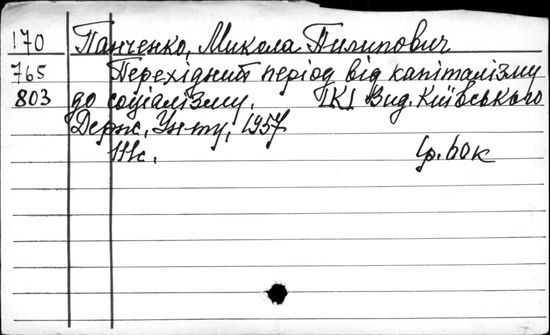 170 Панченко, Микола Пилипович
765 Перехідний період від капіталізму
803 до соціалізму. [К] Вид. Київського
Держ. Ун-ту, 1957
111с. Ср. 60к